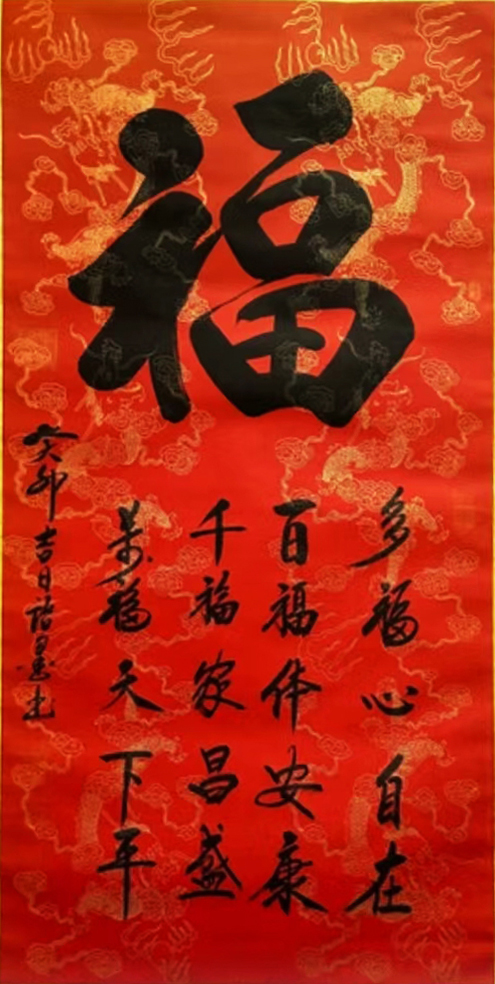 福
多福心自在
百福体安康
千福家昌盛
萬福天下平
癸卯吉日